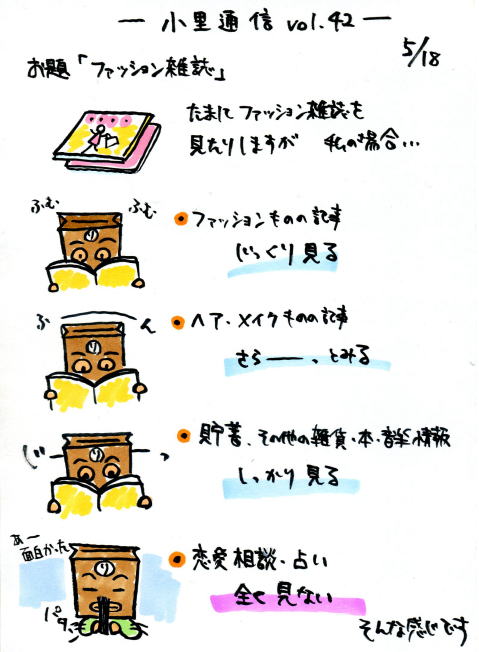 ー小里通信 vol.42ー
5/18
お題「ファッション雑誌」
たまに ファッション雑誌を
見たりしますが 私の場合…
ふむ ふむ
ファッションものの記事
じっくり見る
ふーん
ヘア・メイクものの記事
さらーっとみる
じーっ
貯蓄、その他の雑貨・本・音楽情報
しっかり見る
あー
面白かった
パタン
恋愛相談・占い
全く見ない
そんな感じです